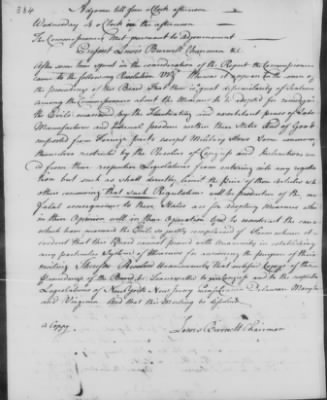 384 Adjourn'd till four o'Clock afternoon
Wednesday 4 o'Clock in the afternoon
The Commissioners met pursuant to Adjournment
Present Lewis Burwell Chairman &c.
After some time spent in the consideration of the Report the Commissioners
came to the following Resolution Whereas it appears in the course of
the proceedings of this Board that there is great dissimilarity of Ideas
among the Commissioners about the Measures to be adopted for remedying
the Evils occasioned by the fluctuating and prices of Labor
Manufactures and internal produce within these States and of Goods
imported from Foreign parts except Military Stores Some
themselves restricted by the Resolves of Congress and Instructions
from their respective Legislatures from entering into any regulation
but such as shall limit the prices of those articles
others conceiving that such Regulations will be productive of the
fatal consequences to these States are for adopting Measures
in their Opinion will in their Operation tend to the
which have the Evils so justly complained of From whence it is
evident that this Board cannot proceed with Unanimity in establishing
any particular System of Measures for answering the purposes of their
meeting Therefore Resolved Unanimously that certified Copies of the
proceedings of the Board be transmitted to Congress and to the respective
Legislatures of New York New Jersey Pennsylvania Delaware Maryland
and Virginia And that this Meeting be dissolved.
a Coppy.
Lewis Burwell Chairman